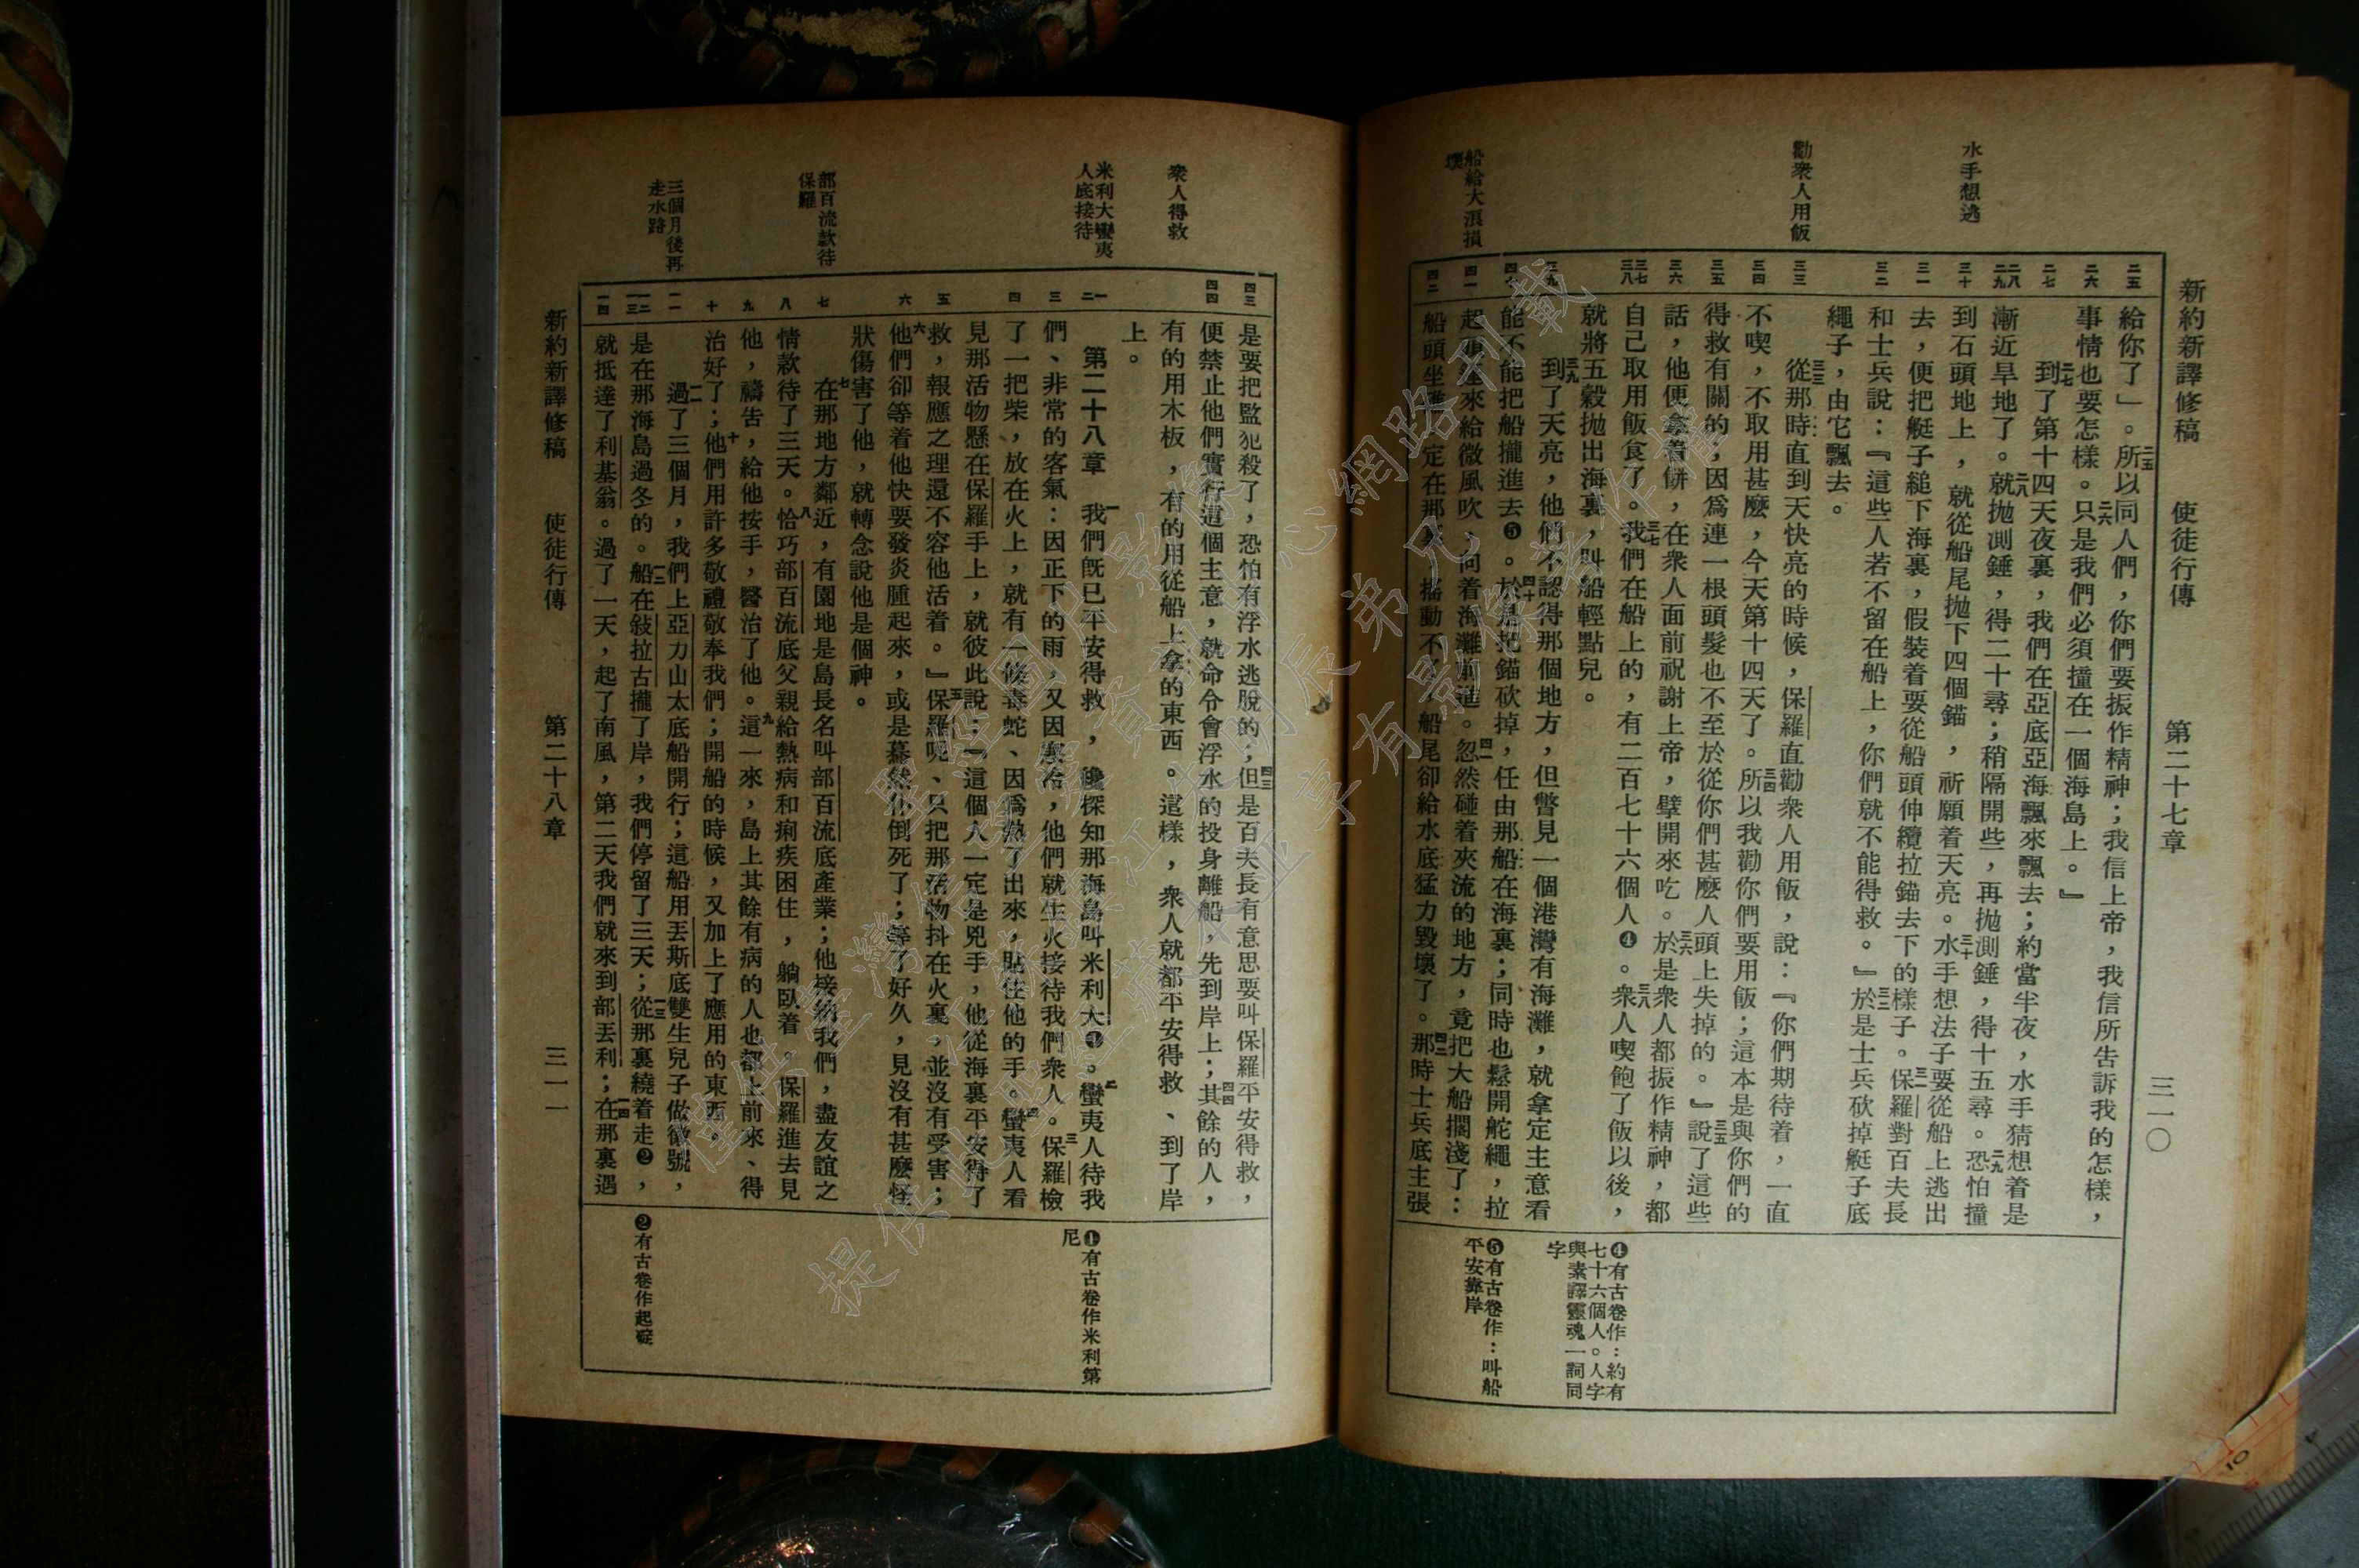 新約新譯修稿 使徒行傳 第二十七章 三一〇
水手想逃
勸衆人用飯
船給大浪損
壞
二五 給你了」。二五所以同人們，你們要振作精神；我信上帝，我信所告訴我的怎樣，
二六 事情也要怎樣。二六只是我們必須撞在一個海島上。』
二七 二七到了第十四天夜裏，我們在亞底亞海飄來飄去；約當半夜，水手猜想着是
二八 二九 漸近旱地了。二八就拋測錘，得二十尋；稍隔開些，再拋測錘，得十五尋。二九恐怕撞
三十 到石頭地上，就從船尾拋下四個錨，祈願着天亮。三十水手想法子要從船上逃出
三一 去，便把艇子縋下海裏，假裝着要從船頭伸纜拉錨去下的樣子。三一保羅對百夫長
三二 和士兵說：『這些人若不留在船上，你們就不能得救。』三二於是士兵砍掉艇子底
繩子，由它飄去。
三三 三三從那時直到天快亮的時候，保羅直勸衆人用飯，說：『你們期待着，一直
三四 不喫，不取用甚麼，今天第十四天了。三四所以我勸你們要用飯；這本是與你們的
三五 得救有關的；因爲連一根頭髮也不至於從你們甚麼人頭上失掉的。』三五說了這些
三六 話，他便拿着餅，在衆人面前祝謝上帝，擘開來吃。三六於是衆人都振作精神，都
三七 三八 自己取用飯食了。三七我們在船上的，有二百七十六個人❹。三八衆人喫飽了飯以後，
就將五穀拋出海裏，叫船輕點兒。
三九 三九到了天亮，他們不認得那個地方，但瞥見一個港灣有海灘，就拿定主意看
四十 能不能把船攏進去❺。四十於是把錨砍掉，任由那船在海裏；同時也鬆開舵繩，拉
四一 起頭篷來給微風吹、向着海灘前進。四一忽然碰着夾流的地方，竟把大船擱淺了：
四二 船頭坐雖定在那裏，搖動不了，船尾卻給水底猛力毀壞了。四二那時士兵底主張
❹有古卷作：約有
七十六個人。人字
與素譯靈魂一詞同
字
❺有古卷作：叫船
平安靠岸
衆人得救
米利大蠻夷
人底接待
部百流款待
保羅
三個月後再
走水路
四三 是要把監犯殺了，恐怕有浮水逃脫的；四三但是百夫長有意思要叫保羅平安得救，
四四 便禁止他們實行這個主意，就命令會浮水的投身離船，先到岸上；四四其餘的人，
有的用木板，有的用從船上拿的東西。這樣，衆人就都平安得救、到了岸
上。
一 二 第二十八章 一我們旣已平安得救，纔探知那海島叫米利大❶。二蠻夷人待我
三 們、非常的客氣：因正下的雨，又因寒冷，他們就生火接待我們衆人。三保羅檢
四 了一把柴，放在火上，就有一條毒蛇、因爲熱了出來，貼住他的手。四蠻夷人看
見那活物懸在保羅手上，就彼此說：『這個人一定是兇手，他從海裏平安得了
五 救，報應之理還不容他活着。』五保羅呢、只把那活物抖在火裏，並沒有受害；
六 六他們卻等着他快要發炎腫起來，或是驀然仆倒死了；等了好久，見沒有甚麼怪
狀傷害了他，就轉念說他是個神。
七 七在那地方鄰近，有園地是島長名叫部百流底產業；他接納我們，盡友誼之
八 情款待了三天。八恰巧部百流底父親給熱病和痢疾困住，躺臥着。保羅進去見
九 他，禱告，給他按手，醫治了他。九這一來，島上其餘有病的人也都上前來、得
十 治好了；十他們用許多敬禮敬奉我們；開船的時候，又加上了應用的東西。
一一 一一過了三個月，我們上亞力山太底船開行；這船用丟斯底雙生兒子做徽號，
一二 一三 是在那海島過冬的。一二船在敍拉古攏了岸，我們停留了三天；一三從那裏繞着走❷，
一四 就抵達了利基翁。過了一天，起了南風，第二天我們就來到部丟利；一四在那裏遇
❶有古卷作米利第
尼
❷有古卷作起碇
新約新譯修稿 使徒行傳 第二十八章 三一一